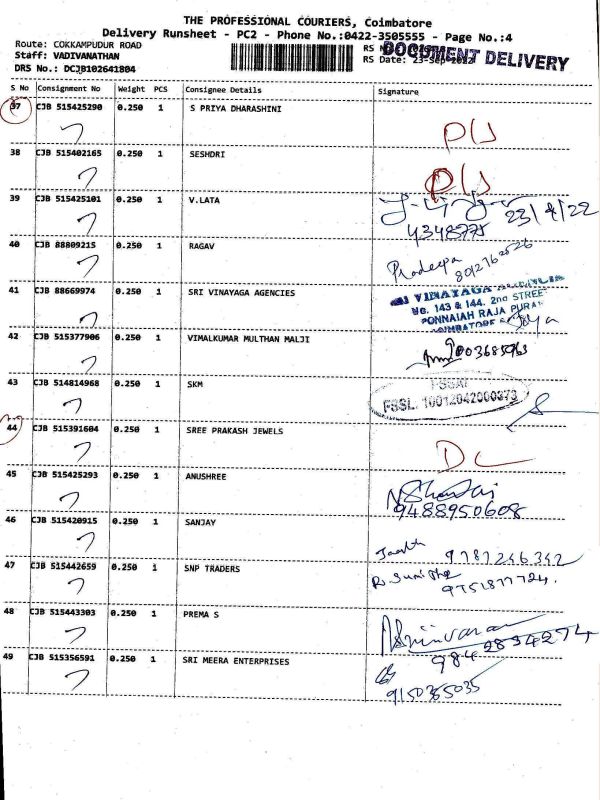 THE PROFESSIONAL COURIERS, Coimbatore
Delivery Runsheet - PC2 - Phone No.:0422-3505555 - Page No.:4
Route: COKKAMPUDUR ROAD RS
Staff: VADIVANATHAN RS Date: 23-Sep-2022
DRS No.: DCJB102641804
DOCUMENT DELIVERY
S No Consignment No Weight PCS Consignee Details Signature
37 CJB 515425290 0.250 1 S PRIYA DHARASHINI
P/S
38 CJB 515402165 0.250 1 SESHDRI
P/S
39 CJB 515425101 0.250 1 V.LATA
23/9/22
40 CJB 88809215 0.250 1 RAGAV
Pradeepa
41 CJB 88669974 0.250 1 SRI VINAYAGA AGENCIES
SRI VINAYAGA
No. 143 & 144, 2nd STREET
PONNAIAH RAJA PURAM
COIMBATORE
42 CJB 515377906 0.250 1 VIMALKUMAR MULTHAN MALJI
43 CJB 514814968 0.250 1 SKM
FSSAI
FSSL. 10012042000373
44 CJB 515391604 0.250 1 SREE PRAKASH JEWELS
DC
45 CJB 515425293 0.250 1 ANUSHREE
9488950608
46 CJB 515420915 0.250 1 SANJAY
9787246342
47 CJB 515442659 0.250 1 SNP TRADERS
9751877724.
48 CJB 515443303 0.250 1 PREMA S
9842894274
49 CJB 515356591 0.250 1 SRI MEERA ENTERPRISES
9150365035